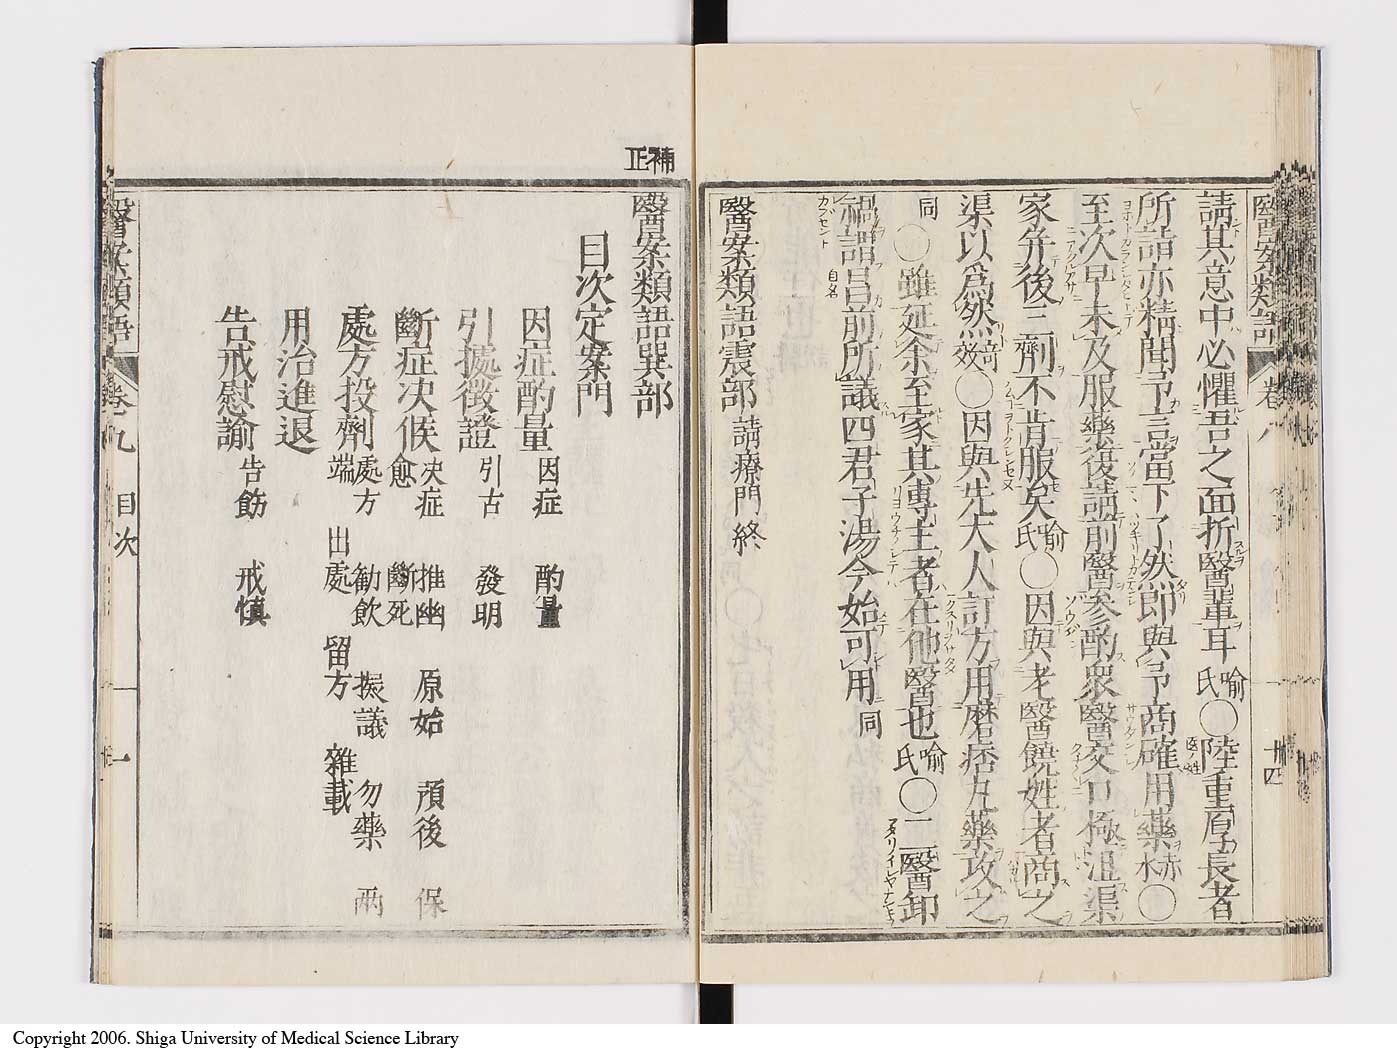 醫案類語 卷八 十四
請其意中必懼吾之面折醫輩耳喻氏〇陸重厚長者
所詣亦精聞予言當下了然卽與予商確用藥赤水〇
至次早未及服藥復請前醫參酌衆醫交口極沮渠
家弁後二劑不肯服矣喻氏〇因與老醫饒姓者商之
渠以爲然奇效〇因與先大人訂方用磨痞丸藥攻之
同〇雖延余至家其專主者在他醫也喻氏〇二醫卸
禍謂昌前所議四君子湯今始可用同
醫案類語震部 請療門終
補正
醫案類語巽部
目次定案門
因症酌量 因症 酌量
引據徵證 引古 發明
斷症決候 决症 推幽 原始 預後 保
愈 斷死
處方投劑 處方 勸飲 振議 勿藥 兩
端 出處 留方 雜載
用治進退
告戒慰諭 告飭 戒慎
醫案類語 卷九 目次 一
Copyright 2006. Shiga University of Medical Science Library